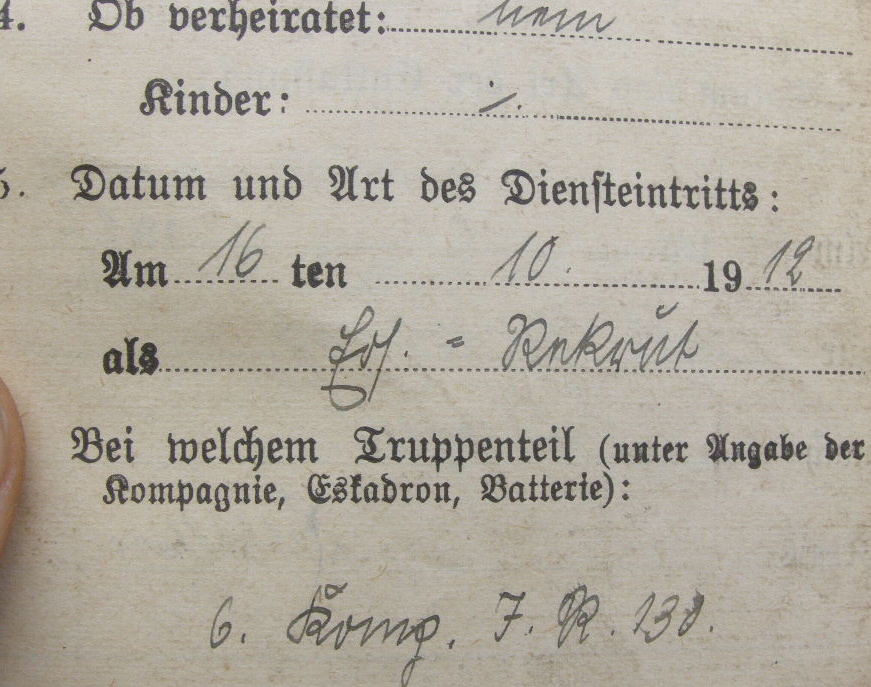 4. Ob verheiratet: nein
Kinder: ·/.
5. Datum und Art des Diensteintritts:
Am 16 ten 10. 1912
als Ers. = Rekrut
Bei welchem Truppenteil (unter Angabe der
Kompagnie, Eskadron, Batterie):
6. Komp. I. R. 138.